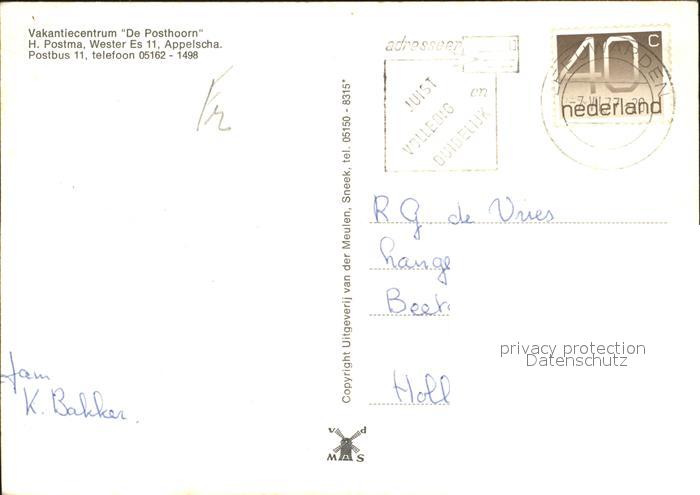 Vakantiecentrum "De Posthoorn"
H. Postma, Wester Es 11, Appelscha.
Postbus 11, telefoon 05162 - 1498
adresseer
JUIST
en
VOLLEDIG
DUIDELIJK
40 c
nederland
Copyright Uitgeverij van der Meulen, Sneek, tel. 05150 - 8315*
R G de Vries
Lange
Beet
Holl
privacy protection
Datenschutz
fam
K. Bakker.
v d
M S